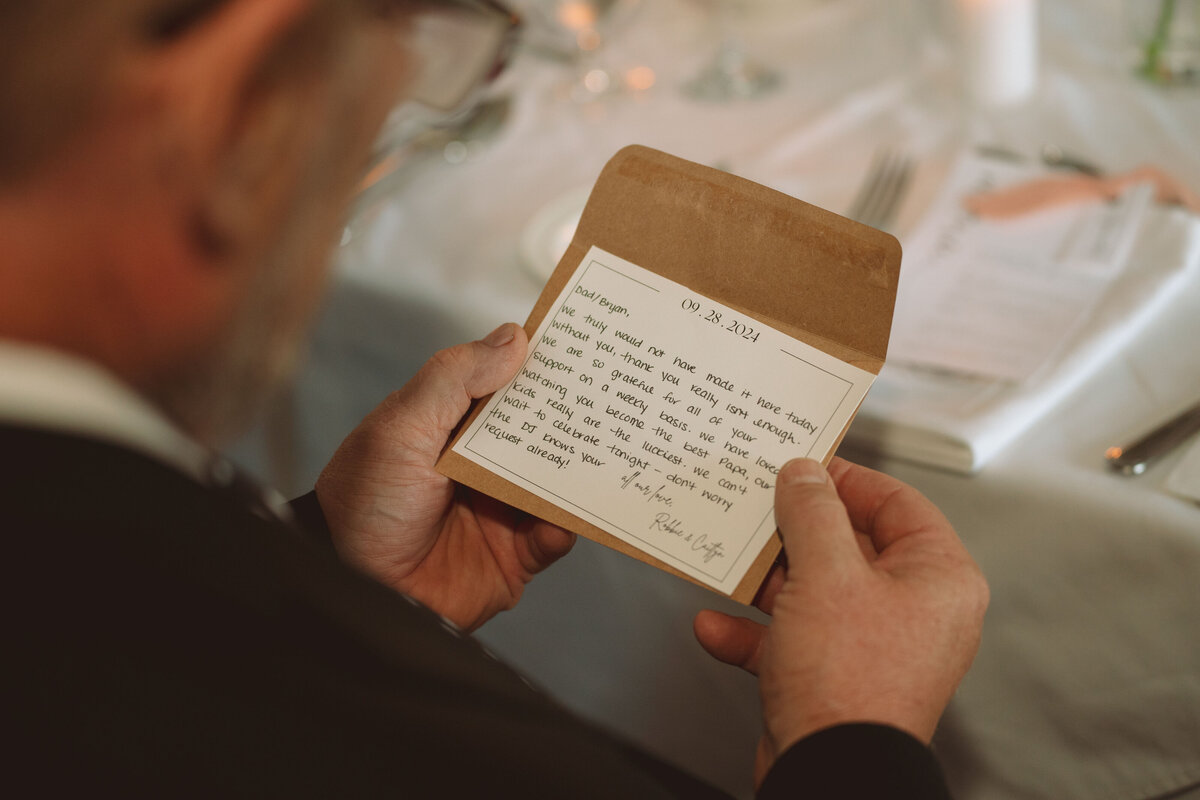 09.28.2024
Dad/Bryan,
We truly would not have made it here today
without you, thank you really isn't enough.
We are so grateful for all of your
support on a weekly basis. We have loved
watching you become the best Papa, our
kids really are the luckiest. We can't
wait to celebrate tonight - don't worry
the DJ knows your
request already!
all our love,
Robbie & Caitlyn